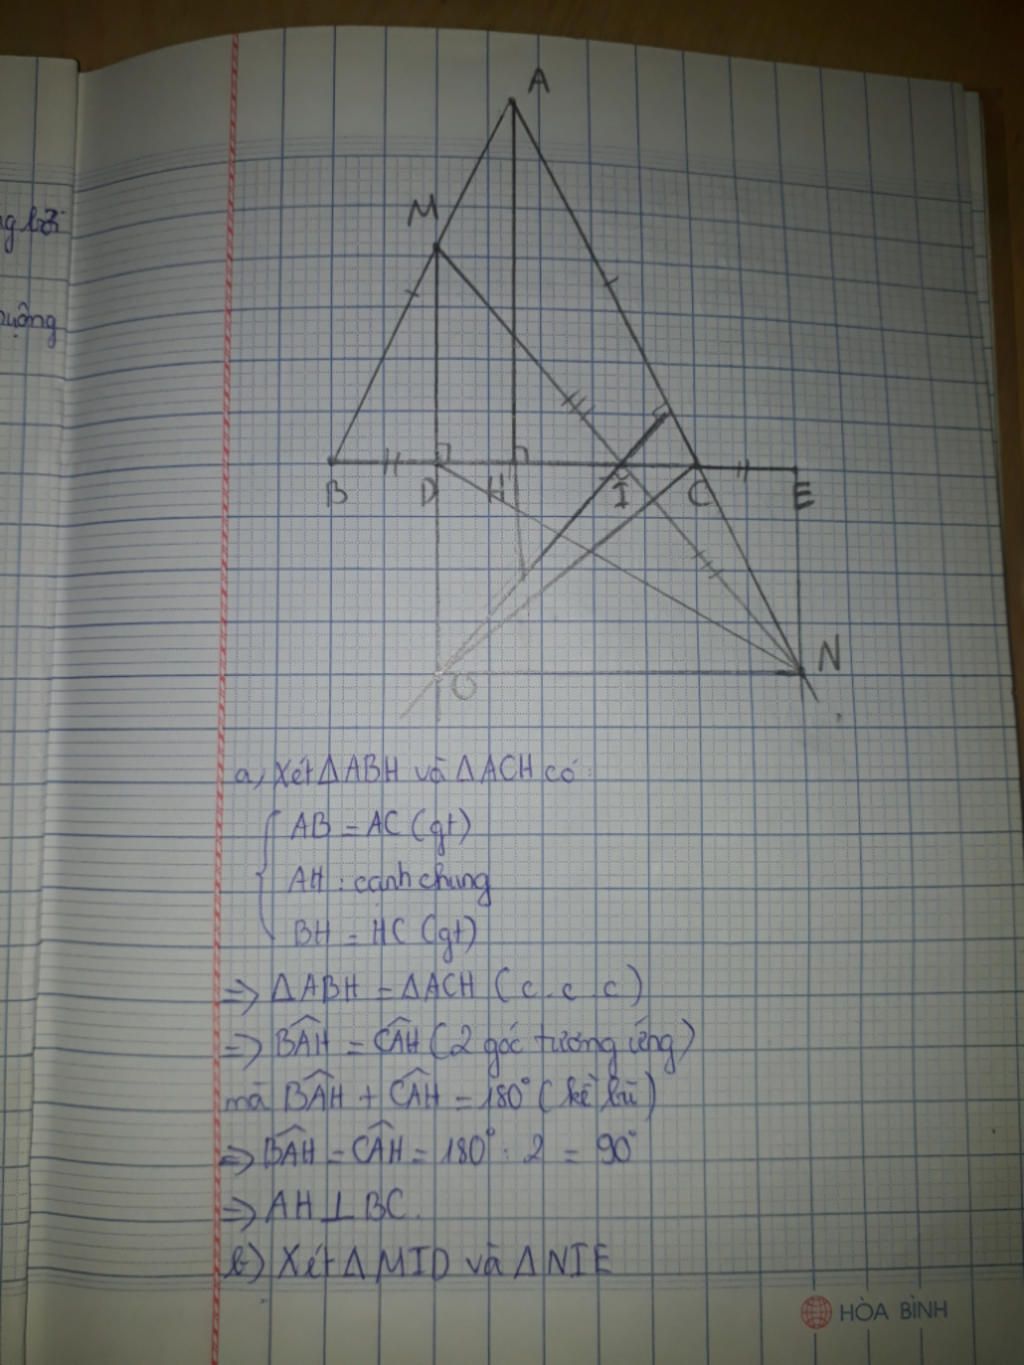 ng bởi
A
M
B D H I C E
O
N
a, Xét ΔABH và ΔACH có:
AB = AC (gt)
AH : cạnh chung
BH = HC (gt)
=> ΔABH = ΔACH (c.c.c)
=> BAH = CAH (2 góc tương ứng)
mà BAH + CAH = 180° (kề bù)
=> BAH = CAH = 180° : 2 = 90°
=> AH ⊥ BC.
b) Xét Δ MID và Δ NIE
HÒA BÌNH